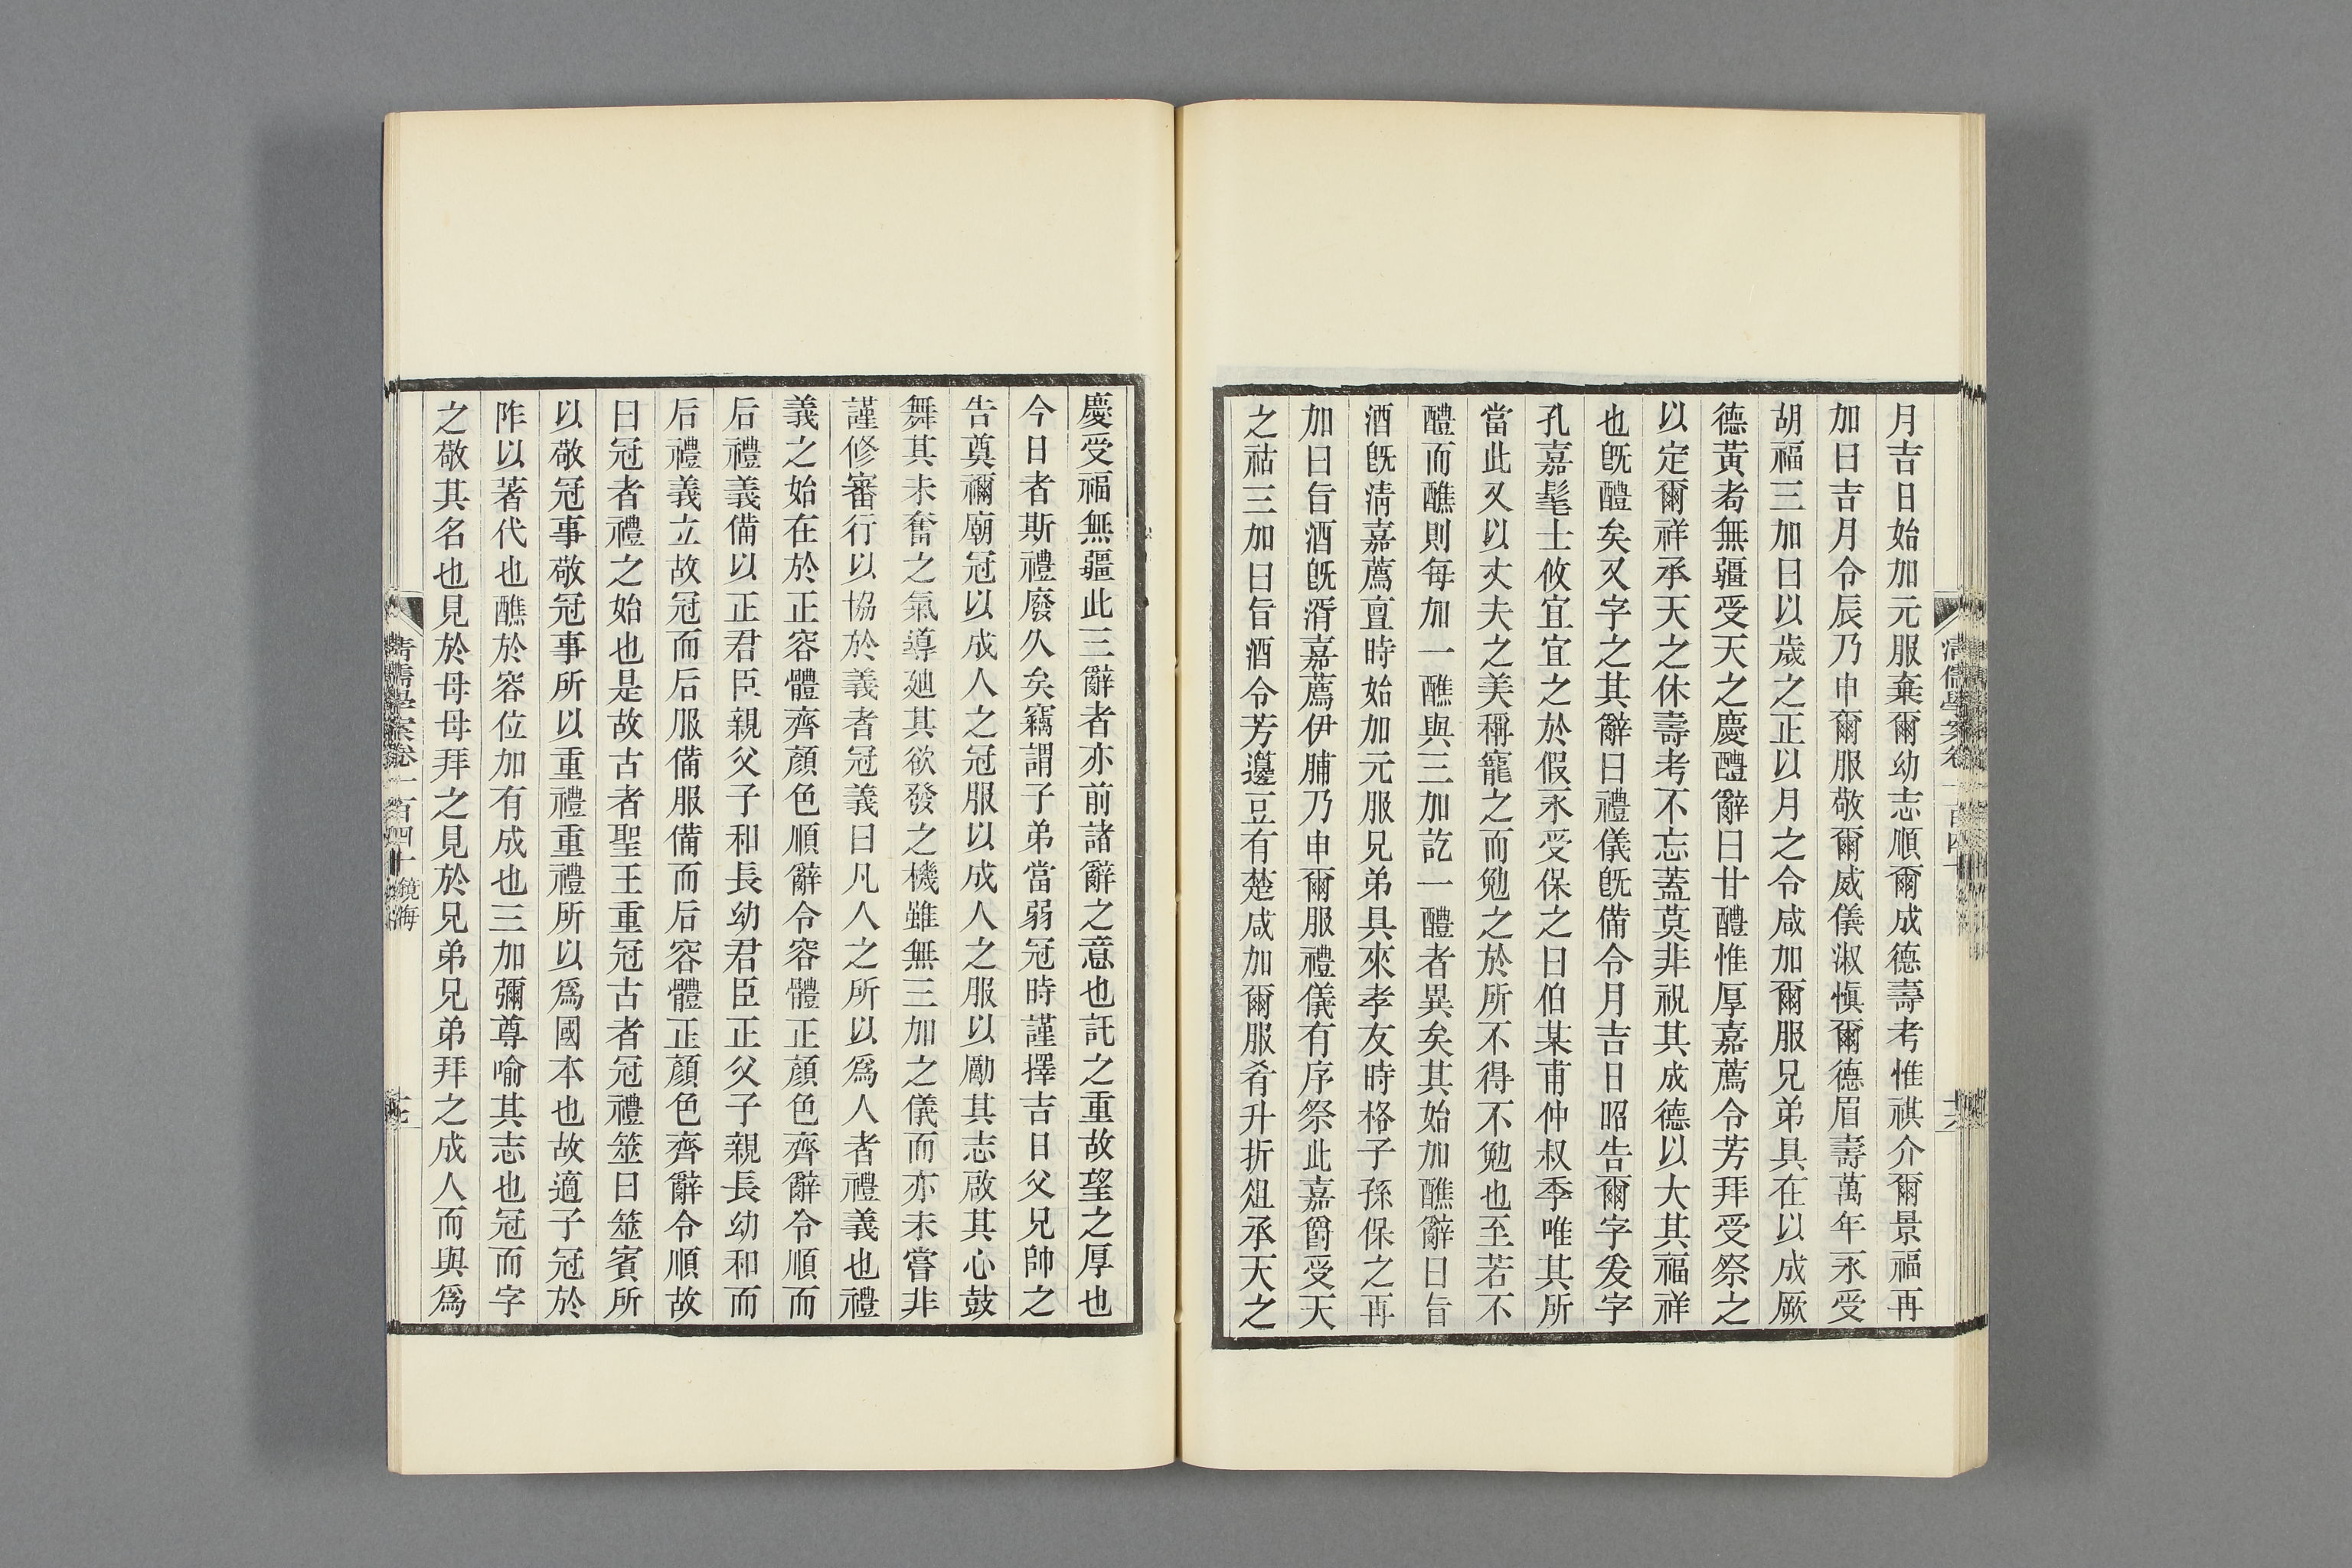 月吉日始加元服棄爾幼志順爾成德壽考惟祺介爾景福再
加曰吉月令辰乃申爾服敬爾威儀淑慎爾德眉壽萬年永受
胡福三加曰以歲之正以月之令咸加爾服兄弟具在以成厥
德黃耇無疆受天之慶醴辭曰甘醴惟厚嘉薦令芳拜受祭之
以定爾祥承天之休壽考不忘蓋莫非祝其成德以大其福祥
也旣醴矣又字之其辭曰禮儀旣備令月吉日昭告爾字爰字
孔嘉髦士攸宜宜之於假永受保之曰伯某甫仲叔季唯其所
當此又以丈夫之美稱寵之而勉之於所不得不勉也至若不
醴而醮則每加一醮與三加訖一醴者異矣其始加醮辭曰旨
酒旣淸嘉薦亶時始加元服兄弟具來孝友時格子孫保之再
加曰旨酒旣湑嘉薦伊脯乃申爾服禮儀有序祭此嘉爵受天
之祜三加曰旨酒令芳籩豆有楚咸加爾服肴升折俎承天之
清儒學案卷一百四十
十六
慶受福無疆此三辭者亦前諸辭之意也託之重故望之厚也
今日者斯禮廢久矣竊謂子弟當弱冠時謹擇吉日父兄帥之
告奠禰廟冠以成人之冠服以成人之服以勵其志啟其心鼓
舞其未奮之氣導迆其欲發之機雖無三加之儀而亦未嘗非
謹修審行以協於義者冠義曰凡人之所以爲人者禮義也禮
義之始在於正容體齊顏色順辭令容體正顏色齊辭令順而
后禮義備以正君臣親父子和長幼君臣正父子親長幼和而
后禮義立故冠而后服備服備而后容體正顏色齊辭令順故
曰冠者禮之始也是故古者聖王重冠古者冠禮筮日筮賓所
以敬冠事敬冠事所以重禮重禮所以爲國本也故適子冠於
阼以著代也醮於客位加有成也三加彌尊喻其志也冠而字
之敬其名也見於母母拜之見於兄弟兄弟拜之成人而與爲
清儒學案卷一百四十 鏡海
十七